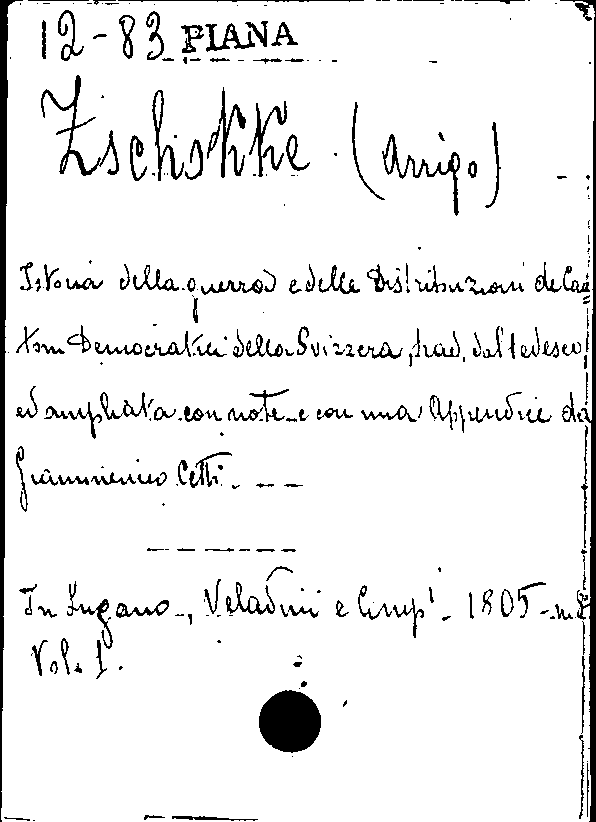 12-83 PIANA
Zschokke (Arrigo)
Istoria della guerra e delle Distribuzioni de Can
toni Democratici della Svizzera, trad. dal tedesco
ed ampliata con note e con una Appendice da
Cetti.
In Lugano, Veladini e Comp.i 1805 - in 8
Vol. 1.